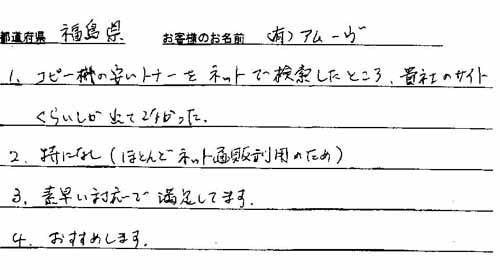 都道府県 福島県 お客様のお名前 (有)アムーヴ
1、コピー機の安いトナーをネットで検索したところ、貴社のサイト
くらいしか出てこなかった.
2、特になし(ほとんどネット通販利用のため)
3、素早い対応で満足してます.
4、おすすめします.